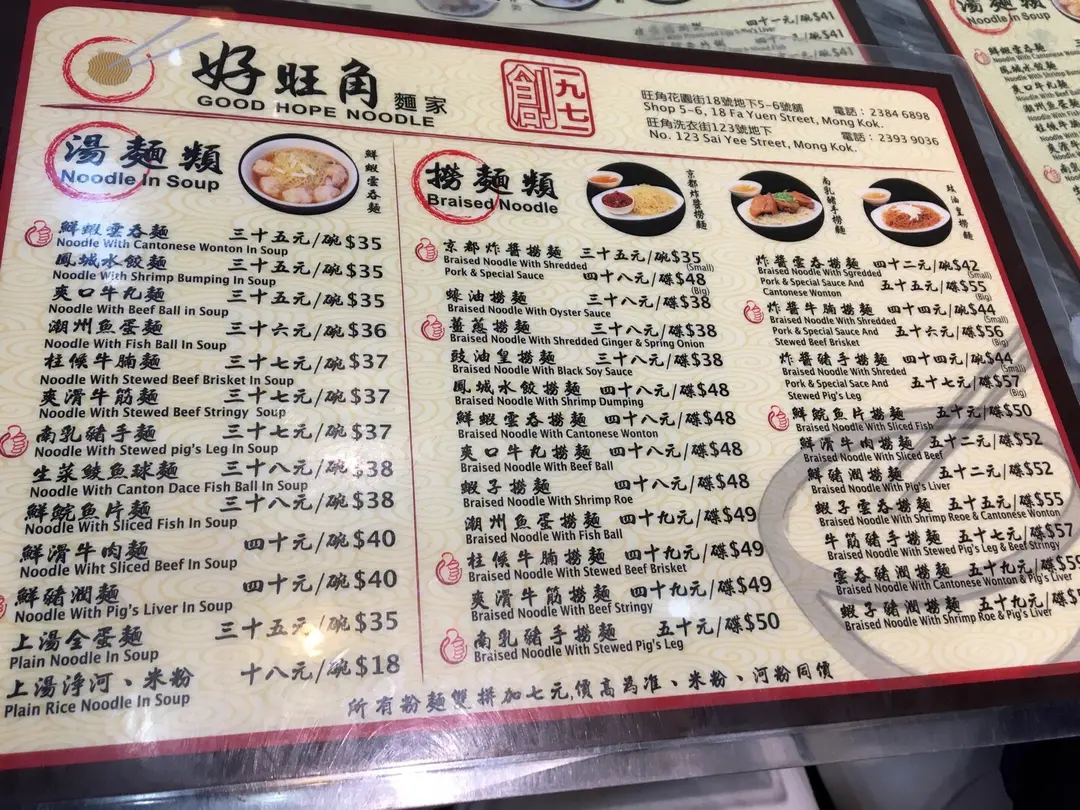 好旺角
麵家
GOOD HOPE NOODLE
創
一九七一
旺角花園街18號地下5-6號舖 電話：2384 6898
Shop 5-6, 18 Fa Yuen Street, Mong Kok.
旺角洗衣街123號地下 電話：2393 9036
No. 123 Sai Yee Street, Mong Kok.
湯麵類
Noodle In Soup
鮮蝦雲吞麵
鮮蝦雲吞麵 三十五元/碗$35
Noodle With Cantonese Wonton In Soup
鳳城水餃麵 三十五元/碗$35
Noodle With Shrimp Bumping In Soup
爽口牛丸麵 三十五元/碗$35
Noodle With Beef Ball in Soup
潮州魚蛋麵 三十六元/碗$36
Noodle With Fish Ball In Soup
柱候牛腩麵 三十七元/碗$37
Noodle With Stewed Beef Brisket In Soup
爽滑牛筋麵 三十七元/碗$37
Noodle With Stewed Beef Stringy Soup
南乳豬手麵 三十七元/碗$37
Noodle With Stewed pig's Leg In Soup
生菜鯪魚球麵 三十八元/碗$38
Noodle With Canton Dace Fish Ball In Soup
鮮鯇魚片麵 三十八元/碗$38
Noodle With Sliced Fish In Soup
鮮滑牛肉麵 四十元/碗$40
Noodle Wiht Sliced Beef In Soup
鮮豬潤麵 四十元/碗$40
Noodle With Pig's Liver In Soup
上湯全蛋麵 三十五元/碗$35
Plain Noodle In Soup
上湯淨河、米粉 十八元/碗$18
Plain Rice Noodle In Soup
撈麵類
Braised Noodle
京都炸醬撈麵
南乳豬手撈麵
豉油皇撈麵
京都炸醬撈麵 三十五元/碗$35
Braised Noodle With Shredded (Small)
Pork & Special Sauce 四十八元/碗$48
(Big)
蠔油撈麵 三十八元/碟$38
Braised Noodle With Oyster Sauce
薑蔥撈麵 三十八元/碟$38
Braised Noodle With Shredded Ginger & Spring Onion
豉油皇撈麵 三十八元/碟$38
Braised Noodle With Black Soy Sauce
鳳城水餃撈麵 四十八元/碟$48
Braised Noodle With Shrimp Dumping
鮮蝦雲吞撈麵 四十八元/碟$48
Braised Noodle With Cantonese Wonton
爽口牛丸撈麵 四十八元/碟$48
Braised Noodle With Beef Ball
蝦子撈麵 四十八元/碟$48
Braised Noodle With Shrimp Roe
潮州魚蛋撈麵 四十九元/碟$49
Braised Noodle With Fish Ball
柱候牛腩撈麵 四十九元/碟$49
Braised Noodle With Stewed Beef Brisket
爽滑牛筋撈麵 四十九元/碟$49
Braised Noodle With Beef Stringy
南乳豬手撈麵 五十元/碟$50
Braised Noodle With Stewed Pig's Leg
炸醬雲吞撈麵 四十二元/碗$42
Braised Noodle With Sgredded (Small)
Pork & Special Sauce And 五十五元/碟$55
Cantonese Wonton (Big)
炸醬牛腩撈麵 四十四元/碗$44
Braised Noodle With Shredded (Small)
Pork & Special Sauce And 五十六元/碟$56
Stewed Beef Brisket (Big)
炸醬豬手撈麵 四十四元/碗$44
Braised Noodle Nith Shreded (Small)
Pork & Special Sace And 五十七元/碟$57
Stewed Pig's Leg (Big)
鮮鯇魚片撈麵 五十元/碟$50
Braised Noodle With Sliced Fish
鮮滑牛肉撈麵 五十二元/碟$52
Braised Noodle With Sliced Beef
鮮豬潤撈麵 五十二元/碟$52
Braised Noodle With Pig's Liver
蝦子雲吞撈麵 五十五元/碟$55
Braised Noodle With Shrimp Reoe & Cantonese Wonton
牛筋豬手撈麵 五十七元/碟$57
Braised Noodle With Stewed Pig's Leg & Beef Stringy
雲吞豬潤撈麵 五十九元/碟$59
Braised Noodle With Cantonese Wonton & Pig's Liver
蝦子豬潤撈麵 五十九元/碟
Braised Noodle With Shrimp Roe & Pig's Liver
所有粉麵雙拼加七元,價高為准、米粉、河粉同價
四十一元/碗$41
四十一元/碗$41
湯麵類
Noodle In Soup
鮮蝦雲吞麵
鳳城水餃麵